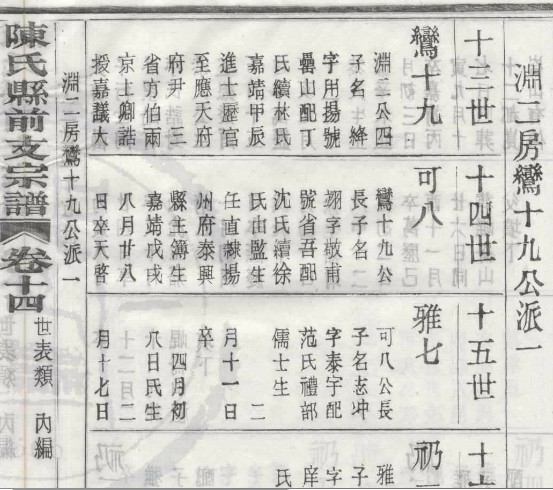 淵二房鸞十九公派一
十三世
鸞十九
淵二公四
子名絳
字用揚號
罍山配丁
氏續林氏
嘉靖甲辰
進士歷官
至應天府
府尹三
省方伯兩
京上卿誥
授嘉議大
十四世
可八
鸞十九公
長子名二
翊字敬甫
號省吾配
沈氏續徐
氏山監生
任直隷揚
州府泰興
縣主簿生
嘉靖戊戌
八月廿八
日卒天啓
十五世
雅七
可八公長
子名志冲
字泰宇配
范氏禮部
儒士生
二
月十一日
卒
四月初
八日氏生
月十七日
十六
礽
雅
子
字
庠
氏
淵二房鸞十九公派一
陳氏縣前支宗譜 卷十四 世表類 內編